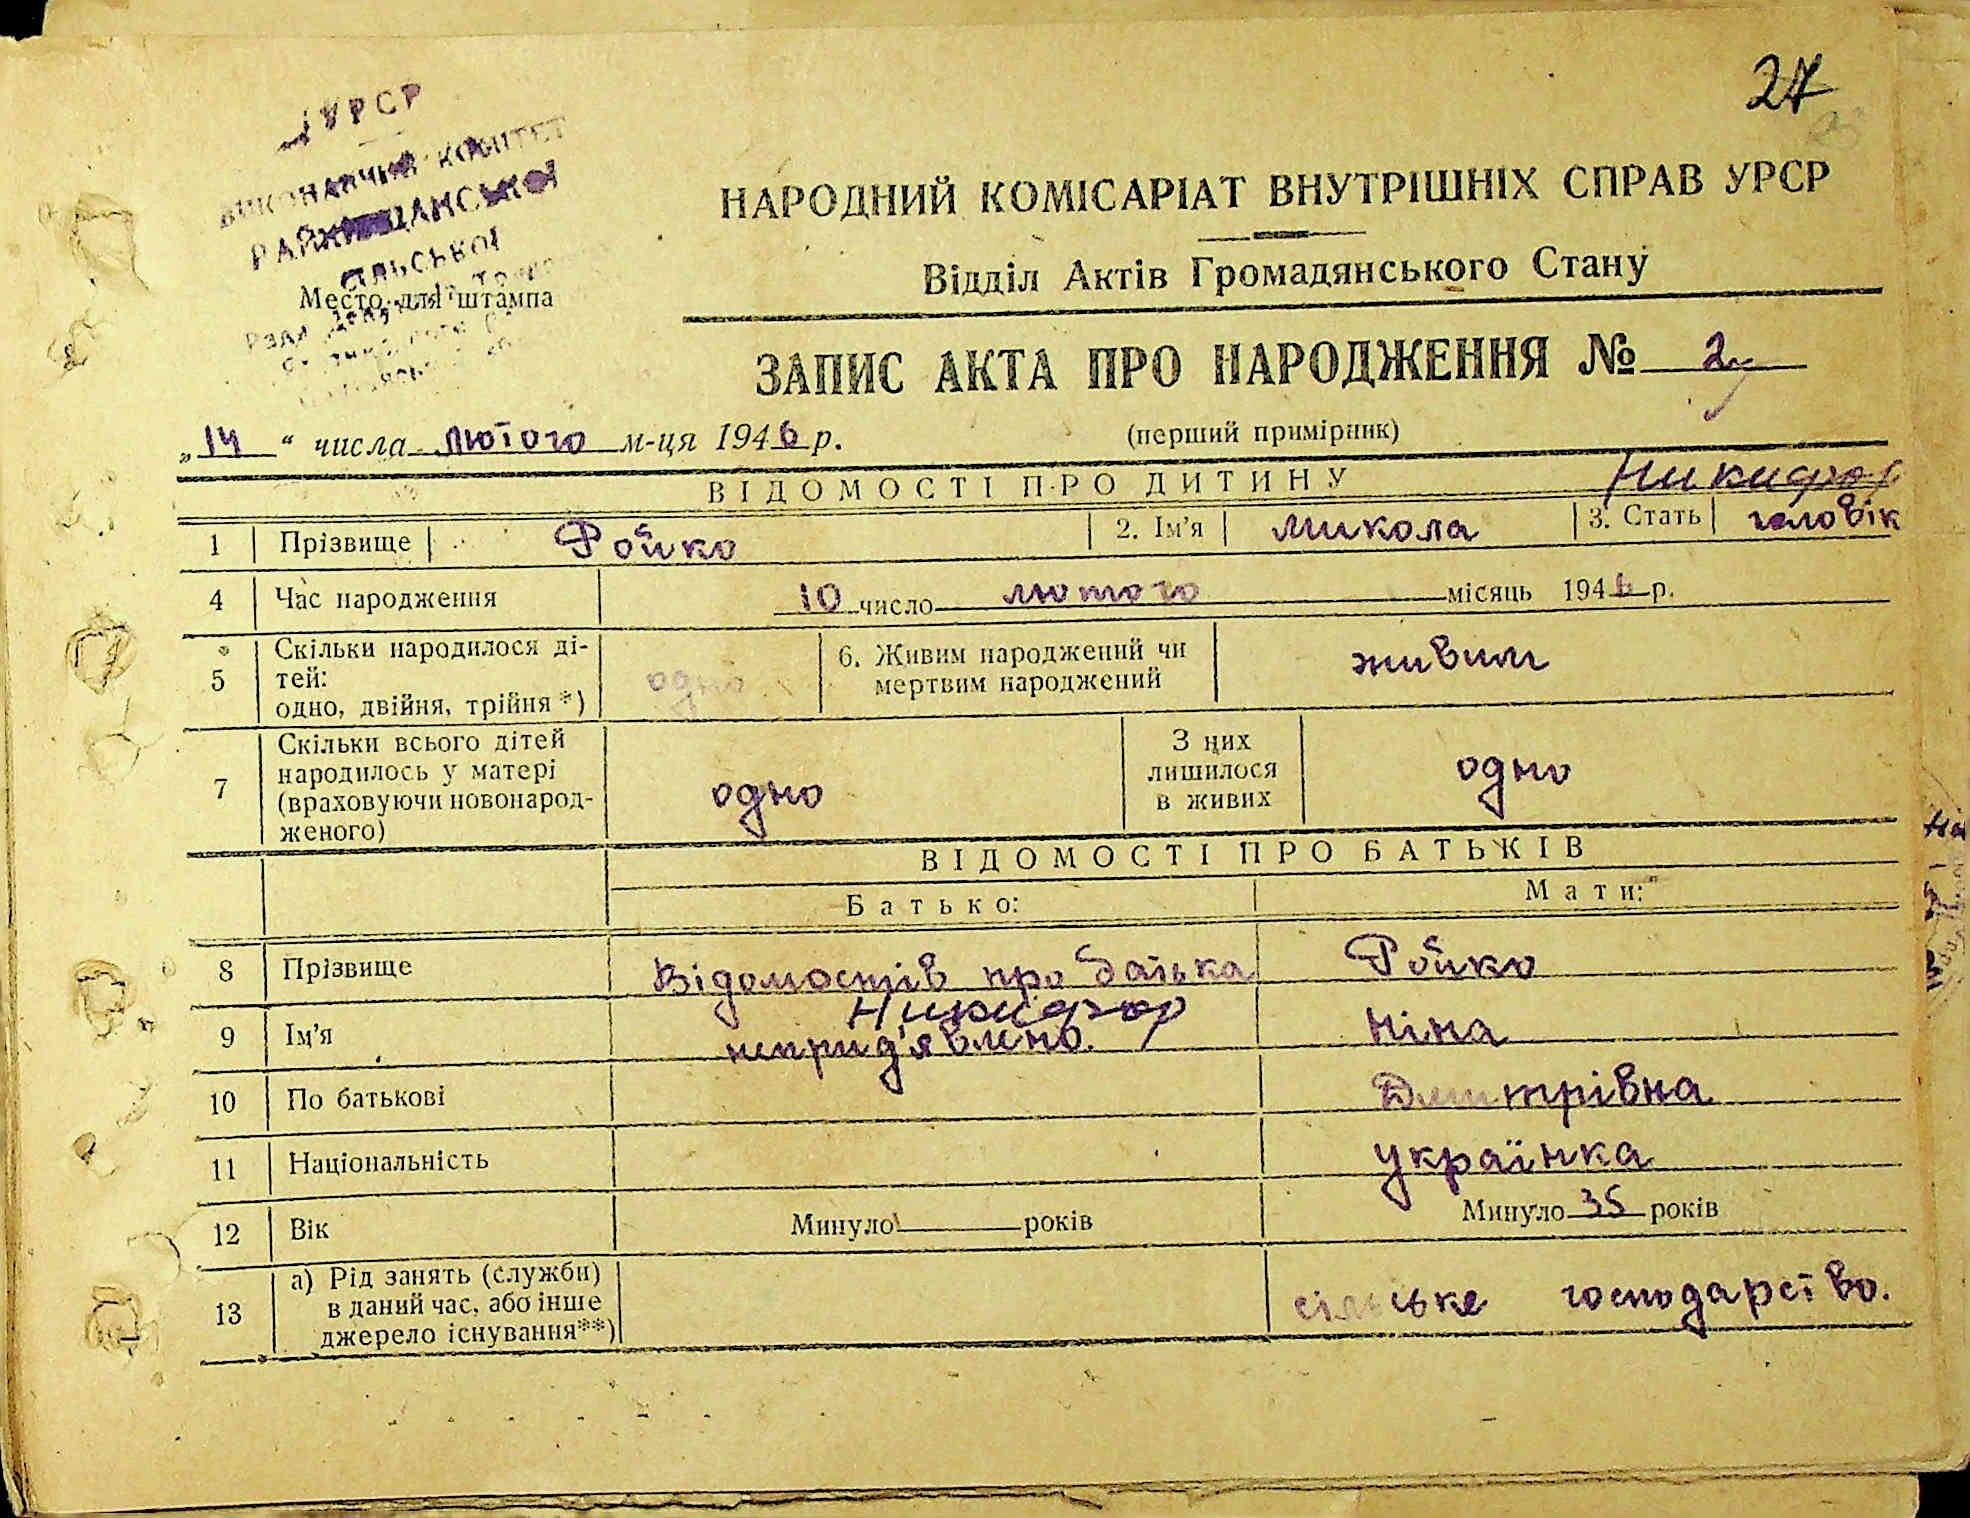 27
УРСР
ВИКОНАВЧИЙ КОМІТЕТ
СІЛЬСЬКОЇ
Место для штампа
НАРОДНИЙ КОМІСАРІАТ ВНУТРІШНІХ СПРАВ УРСР
Відділ Актів Громадянського Стану
ЗАПИС АКТА ПРО НАРОДЖЕННЯ № 2
„14“ числа лютого м-ця 1946 р. (перший примірник)
ВІДОМОСТІ ПРО ДИТИНУ Никифор
1 Прізвище Ройко 2. Ім'я микола 3. Стать головік
4 Час народження 10 число лютого місяць 1946 р.
5 Скільки народилося ді-
тей:
одно, двійня, трійня *) одно 6. Живим народжений чи
мертвим народжений живим
7 Скільки всього дітей
народилось у матері
(враховуючи новонарод-
женого) одно З них
лишилося
в живих одно
ВІДОМОСТІ ПРО БАТЬКІВ
Батько: Мати:
8 Прізвище Відомостів про батька Ройко
Никифор
9 Ім'я неприд'явлено. Ніна
10 По батькові Дмитрівна
11 Національність українка
12 Вік Минуло років Минуло 35 років
13 а) Рід занять (служби)
в даний час, або інше
джерело існування**) сільське господарство.